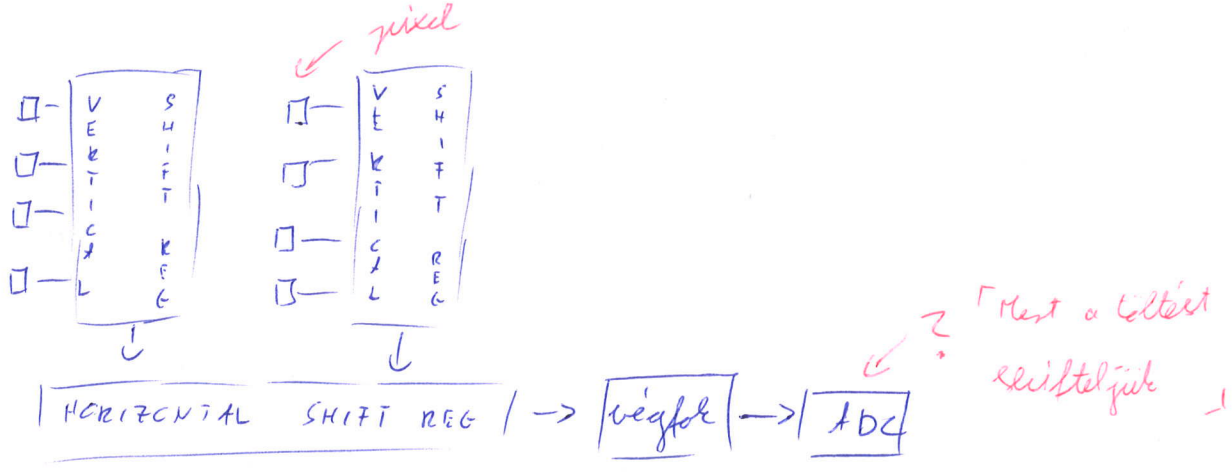 pixel
VERTICAL SHIFT REG
VERTICAL SHIFT REG
HORIZONTAL SHIFT REG → végfok → ADC
? 「Mert a töltést
shifteljük 」